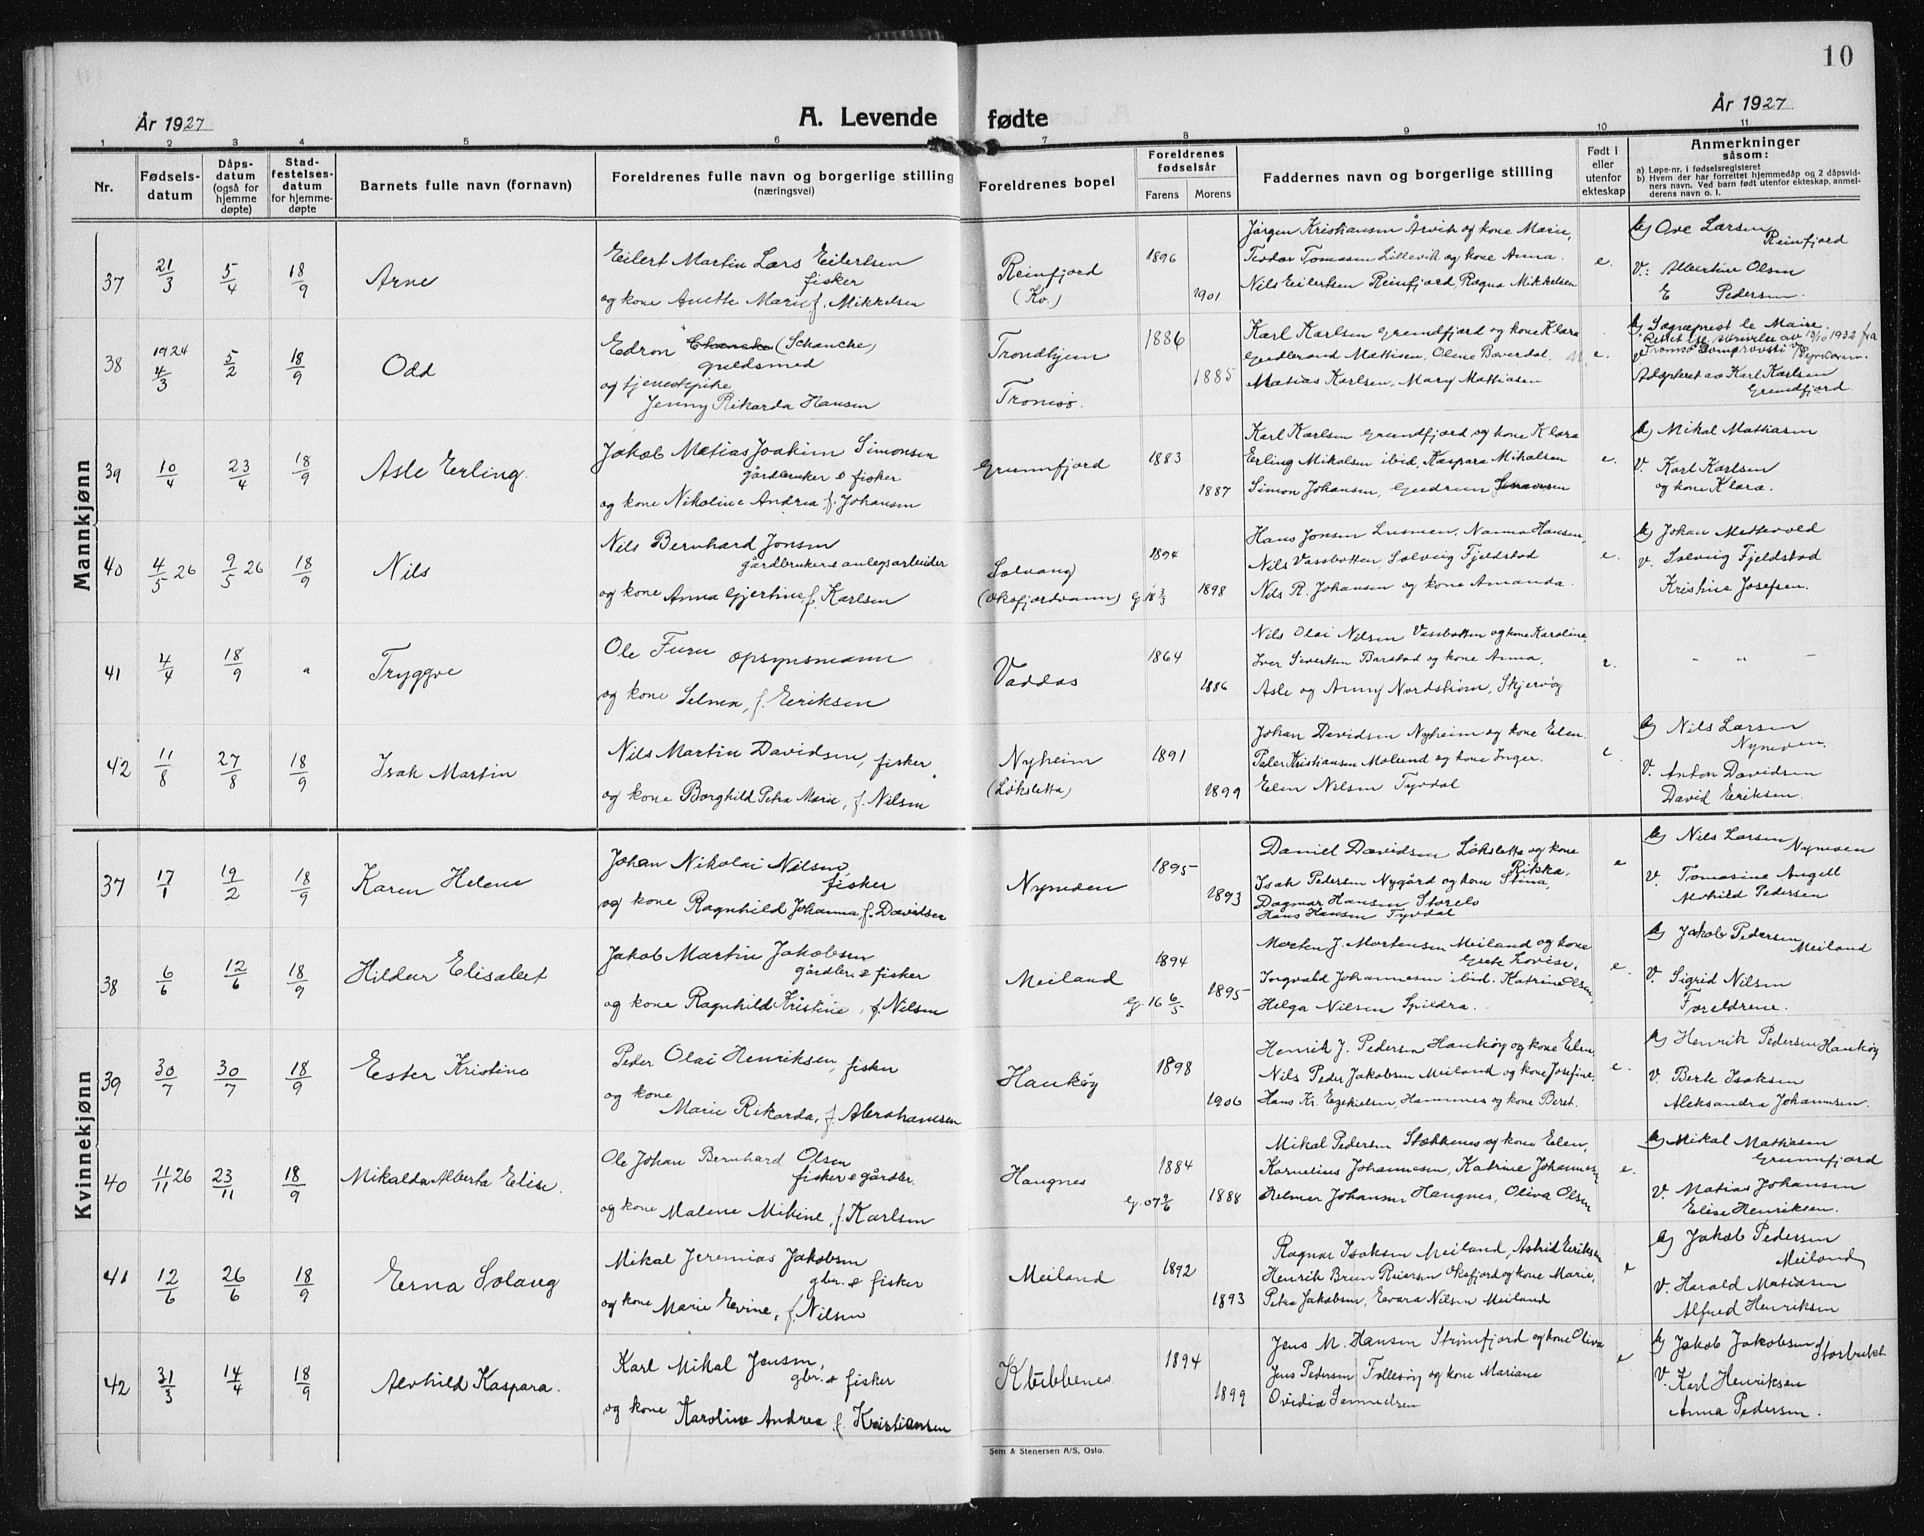 10
År 1927
A. Levende fødte
År 1927
1 2 3 4 5 6 7 8 9 10 11
Nr.
Fødsels-
datum
Dåps-
datum
(også for
hjemme
døpte)
Stad-
festelses-
datum
for hjemme-
døpte
Barnets fulle navn (fornavn)
Foreldrenes fulle navn og borgerlige stilling
(næringsvei)
Foreldrenes bopel
Foreldrenes
fødselsår
Farens Morens
Faddernes navn og borgerlige stilling
Født i
eller
utenfor
ekteskap
Anmerkninger
såsom:
a) Løpe-nr. i fødselsregisteret
b) Hvem der har forrettet hjemmedåp og 2 dåpsvid-
ners navn. Ved barn født utenfor ekteskap, anmel-
derens navn o. l.
Mannkjønn
37 21/3 5/4 18/9 Arne
Eilert Martin Lars Eilertsen
fisker
og kone Anette Marie f. Mikkelsen
Reinfjord
(Kv.)
1896
1901
Jørgen Kristiansen Årvik og kone Marie,
Teodor Tomasen Lillevik og kone Anna.
Nils Eilertsen Reinfjord Ragna Mikkelsen
e.
b) Ove Larsen
Reinfjord
V: Albertine Olsen
E Pedersen.
38 1924 4/3 5/2 18/9 Odd
Edron Chanske (Schancke)
gullsmed
og tjenestepike
Jenny Rikarda Hansen
Trondhjem
Tromsø.
1886
1885
Karl Karlsen Grundfjord og kone Klara
Gudlerand Mattisen, Oline Bæverdal.
Matias Karlsen, Mary Mathiasen
e.
b) Sogneprest le Maire.
skrivelse av 13/10 1932 fra
Tromsø Domprovsti
Adopteret av Karl Karlsen
Grundfjord.
39 10/4 23/4 18/9 Asle Erling.
Jakob Matias Joakim Simonsen
gårdbruker & fisker
og kone Nikoline Andrea f. Johansen
Grunnfjord
1883
1887
Karl Karlsen Grundfjord og kone Klara
Erling Mikalsen ibid, Kaspara Mikalsen
Simon Johansen, Gudrun Simonsen
e.
b) Mikal Mathiasen
V. Karl Karlsen
og kone Klara.
40 4/5 26 9/5 26 18/9 Nils
Nils Bernhard Jonsen
gårdbruker & anlegsarbeider
og kone Anna Gjertine f. Karlsen
Solvang
(Oksfjordvann) g. 18 3/3
1894
1898
Hans Jonsen Lusmen, Nanna Hansen,
Nils Vassbotten Solveig Fjeldstad
Nils R. Johansen og kone Amanda.
e.
b) Johan Mettevold
v. Solveig Fjeldstad
Kristine Josefsen.
41 4/4 18/9 " Tryggve
Ole Furu opsynsmann
og kone Selma, f. Eriksen
Vaddas
1864
1886
Nils Olai Nilsen Vassbotten og kone Karoline,
Iver Sivertsen Barstad og kone Anna,
Asle og Anny Nordstrøm, Skjervøy
e.
" " "
42 11/8 27/8 18/9 Isak Martin
Nils Martin Davidsen, fisker
og kone Borghild Petra Marie, f. Nilsen
Nyheim
(Løksletta)
1891
1899
Johan Davidsen Nyheim og kone Elen.
Peder Kristiansen Moland og kone Inger.
Elen Nilsen Tyvdal
e
b) Nils Larsen
Nymoen.
V. Anton Davidsen
David Eriksen.
Kvinnekjønn
37 17/1 19/2 18/9 Karen Helene
Johan Nikolai Nilsen,
fisker
og kone Ragnhild Johanna f. Davidsen
Nymoen
1895
1893
Daniel Davidsen Løksletta og kone
Rikka,
Isak Pedersen Nygård og kone Stina,
Dagmar Hansen Storelv
Hans Hansen Tyvdal
e
b) Nils Larsen
Nymoen
V. Tomasine Angell
Alvhild Pedersen
38 6/6 12/6 18/9 Hildur Elisabet
Jakob Martin Jakobsen
gårdbr. & fisker
og kone Ragnhild Kristine, f. Nilsen
Meiland
g. 16 6/5
1894
1895
Morten J. Mortensen Meiland og kone
Grete Lovise,
Ingvald Johannesen ibid. Katrine Olsen,
Helga Nilsen Spildra.
e.
b) Jakob Pedersen
Meiland
V. Sigrid Nilsen
Foreldrene.
39 30/7 30/7 18/9 Ester Kristine
Peder Olai Henriksen, fisker
og kone
Marie Rikarda, f. Abrahamsen
Haukøy
1898
1906
Henrik J. Pedersen Haukøy og kone Elen,
Nils Peder Jakobsen Meiland og kone Josefine.
Hans Kr. Ezekielsen, Hamnnes og kone Beret.
e.
b) Henrik Pedersen Haukøy
V. Berte Isaksen
Aleksandra Johannesen.
40 11/11 26 23/11 18/9 Mikalda Alberta Elise.
Ole Johan Bernhard Olsen
fisker & gårdbr.
og kone Malene Mikine, f. Karlsen
Haugnes
g. 07 9/6
1884
1888
Mikal Pedersen Stakkenes og kone Elen,
Kornelius Johannesen, Katrine Johannesen
Helmer Johansen Haugnes, Oliva Olsen
e.
b) Mikal Mathiasen
Grunnfjord
V. Matias Johansen
Elise Henriksen.
41 12/6 26/6 18/9 Erna Solaug
Mikal Jeremias Jakobsen
gbr. & fisker
og kone Marie Evine, f. Nilsen
Meiland
1892
1893
Ragnar Isaksen Meiland, Astrid Eriksen
Henrik Brun Reiersen Oksfjord og kone Marie,
Petra Jakobsen, Evara Nilsen Meiland
e
b) Jakob Pedersen
Meiland
V. Harald Matisen
Alfred Henriksen
42 31/3 14/4 18/9 Alvhild Kaspara.
Karl Mikal Jensen,
gbr. & fisker
og kone Karoline Andrea f. Kristiansen
Klubbenes
1894
1899
Jens M. Hansen Strømfjord og kone Oliva
Jens Pedersen Follesøy og kone Mariane
Ovidia Samuelsen
e
b) Jakob Jakobsen
Storbukt
V. Karl Henriksen
Anna Pedersen.
Sem & Stenersen A/S, Oslo.